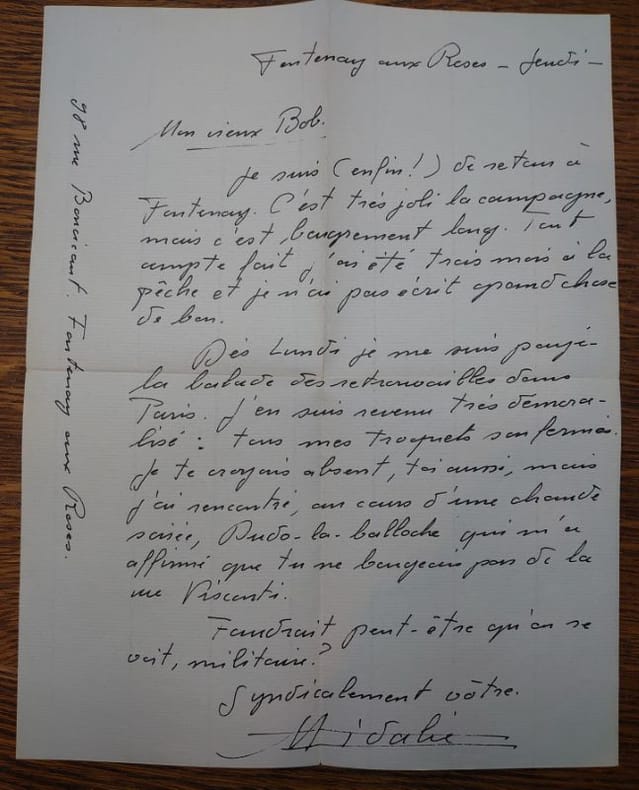 Fontenay aux Roses - Jeudi -
Mon vieux Bob.
Je suis (enfin!) de retour à
Fontenay. C'est très joli la campagne,
mais c'est bougrement long. Tout
compte fait j'ai été trois mois à la
pêche et je n'ai pas écrit grand chose
de bon.
Dès Lundi je me suis payé
la balade des retrouvailles dans
Paris. J'en suis revenu très démora-
lisé : tous mes troquets son fermés.
Je te croyais absent, toi aussi, mais
j'ai rencontré, au cours d'une chaude
soirée, Dudo-la-balloche qui m'a
affirmé que tu ne bougeais pas de la
rue Visconti.
Faudrait peut-être qu'on se
voit, militaire?
Syndicalement vôtre.
98 rue Boucicaut. Fontenay aux Roses.